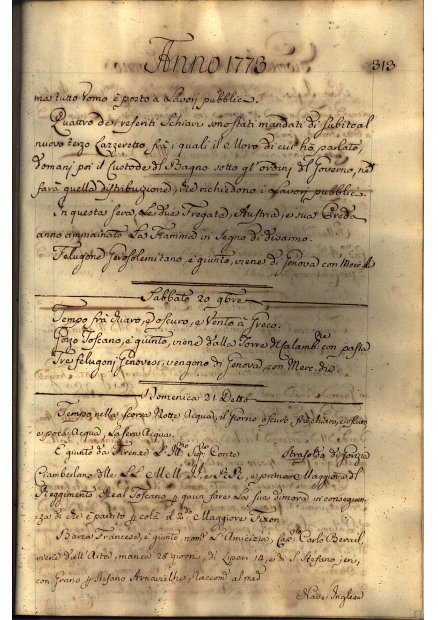 Anno 1773 313
ma tutto Uomo è porto a Lavorj pubblici.
Quattro de i referiti Schiavi sono stati mandati di subito al
nuovo terzo Lazzeretto, frà i quali il Moro di cui hò parlato,
domani poi il Custode del Bagno sotto gl'ordini del Governo, ne
farà quella distribuzione, che richiedono i Lavorj pubblici.
In questa sera, Le due Fregate, Austria, e sua Preda
anno ammainato La Fiamma in Segno di disarmo.
Felugone Gerosolemitano, è giunto, viene di Genova con Merc.
Sabbato 20 9bre
Tempo frà chiaro, e oscuro, e Vento à Greco.
Gozo Toscano, è giunto, viene dalla Torre di con pasta
Tre felugoni Genovesi, vengono di Genova, con Merc.
Domenica 21 Detto
Tempo nella scorza Notte Acqua, il Giorno oscuro frà chiaro, e oscuro
e poca Acqua, La sera Acqua.
È giunto da Firenze Conte Strasoldo di Gorizia
Ciamberlano delle LL. MM. e primo Maggiore del
Reggimento Real Toscano quivi fare La sua dimora in conseguen-
za di che è partito colà il Maggiore Tixon
Barca Francese, è giunto, L'Amicizia, Cap. Carlo
viene d'all'Arta, manca 28 giorni, di Lipari 14, e di S. Stefano jeri,
con Grano Stefano raccom. al med.
Nave Inglese